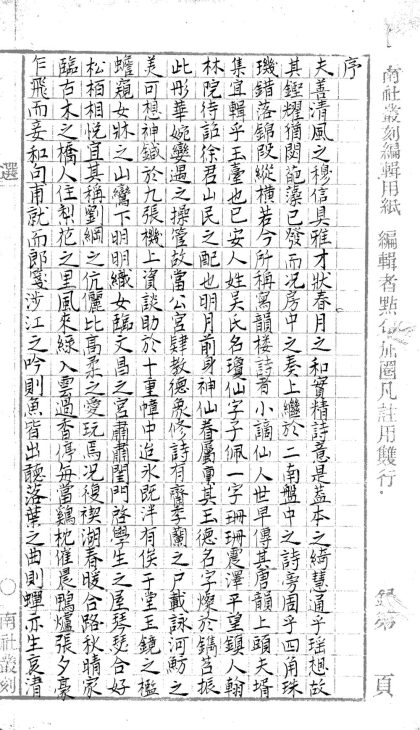 南社叢刻編輯用紙　編輯者點句加圈凡註用雙行.
頁
序
夫善清風之穆信具雅才狀春月之和實精詩意是蓋本之綺慧通乎瑶想故
其鏗耀猶閟葩藻已發而況房中之奏上繼於二南盤中之詩旁周乎四角珠
璣錯落錦段縱橫若今所稱寫韻楼詩者小謫仙人世早傳其唐韻上頭夫壻
集宜輯乎玉臺也已安人姓吴氏名瓊仙字子佩一字珊珊震澤平望鎮人翰
林院待詔徐君山民之配也明月前身神仙眷屬稟其玉德名字燦於鐫苕振
此彤華婉孌過之操管故當公宮肄教德象修詩有齊季蘭之尸載詠河魴之
美可想神鍼於九張機上資談助於十重幢中迨氷既泮有俟于堂玉鏡之檻
蟾窺女牀之山鸞下明明織女臨文昌之宮肅肅閨門啓學生之屋琴瑟合好
松柏相悦宜其稱劉綱之伉儷比高柔之愛玩焉况復禊湖春暖合路秋晴家
臨古木之橋人住梨花之里風來緑入雲過香停每當鷄枕催晨鴨爐張夕豪
乍飛而妾和句甫就而郎箋涉江之吟則魚皆出聽落葉之曲則蟬亦生哀清
選
南社叢刻